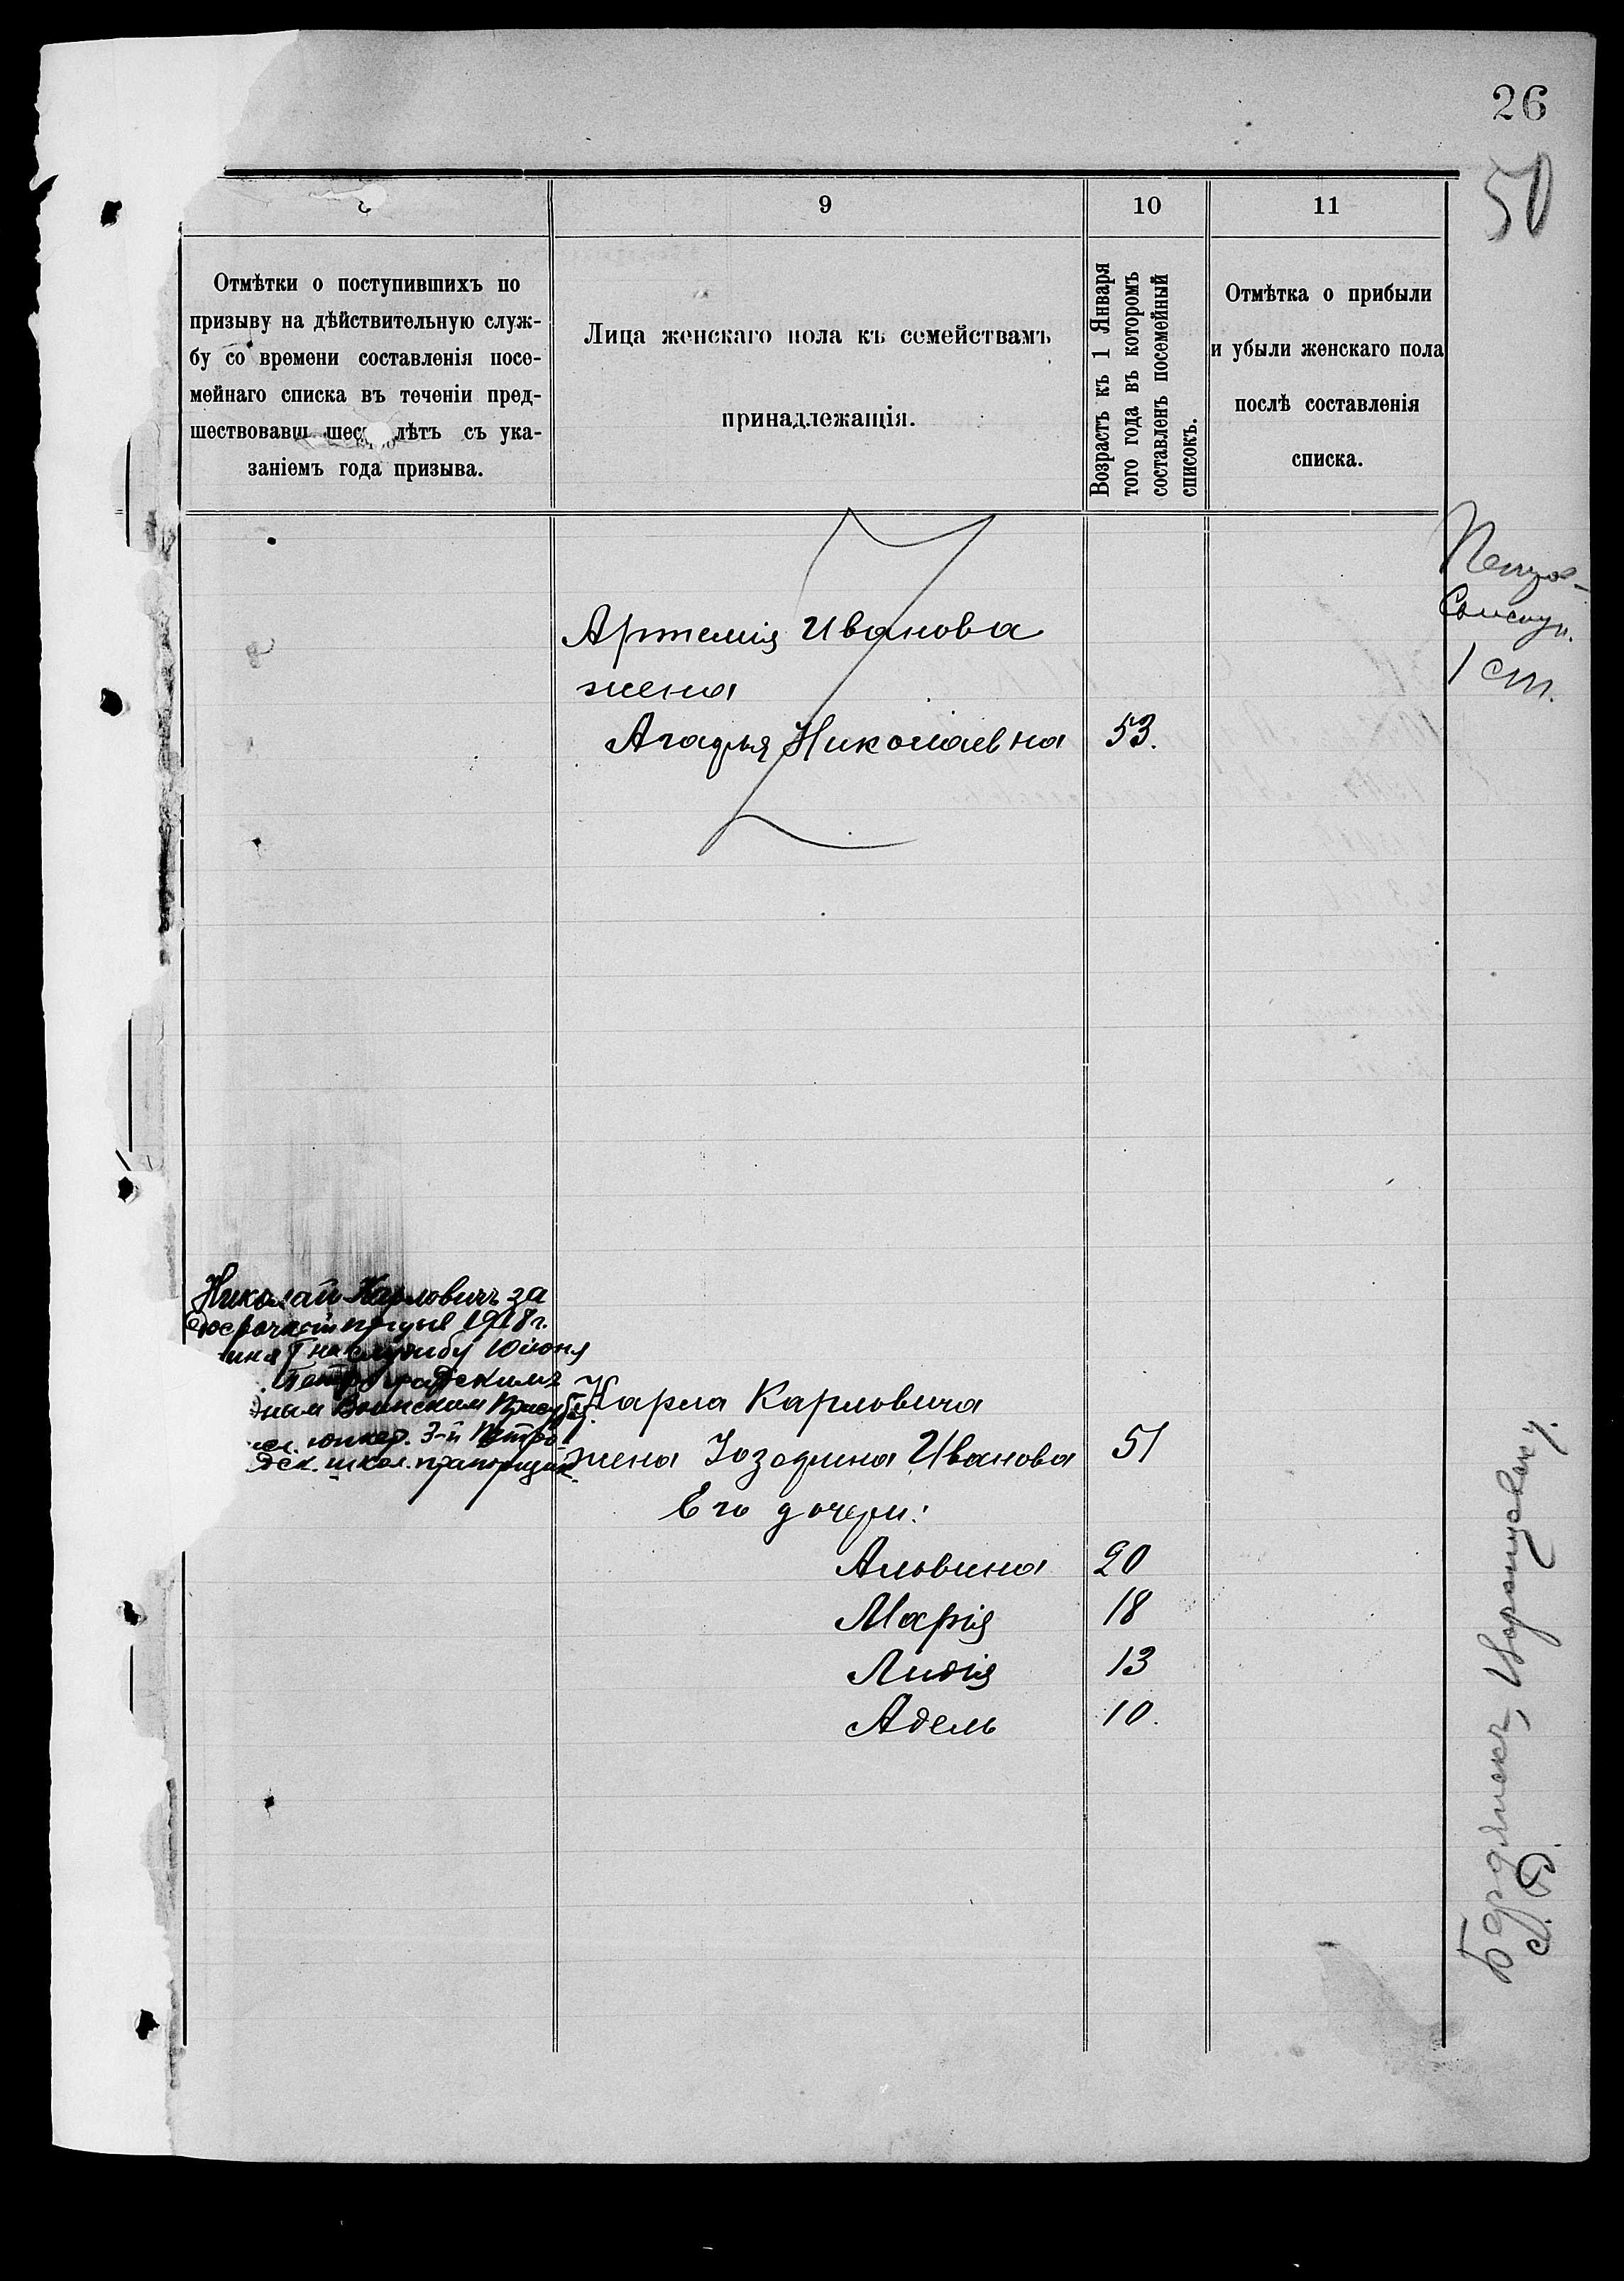 26
50
9
10
11
Отмѣтки о поступившихъ по
призыву на дѣйствительную служ-
бу со времени составленія посе-
мейнаго списка въ теченіи пред-
шествовавш шес лѣтъ съ ука-
заніемъ года призыва.
Лица женскаго пола къ семействамъ
принадлежащія.
Возрастъ къ 1 Января
того года въ которомъ
составленъ посемейный
списокъ.
Отмѣтка о прибыли
и убыли женскаго пола
послѣ составленія
списка.
1 ст.
Артемія Иванова
жена
Агафья Николаевна 53.
Николай Карловичъ за
призыв 1918 г.
на службу 10 іюня
Петроградскимъ
Воинским
юнкер. 3-й Петро-
школ.
Карла Карловича
жена Іозефина Иванова 51
Его дочери:
Альвина 20
Марія 18
Лидія 13
Адель 10.
Бердянскъ,